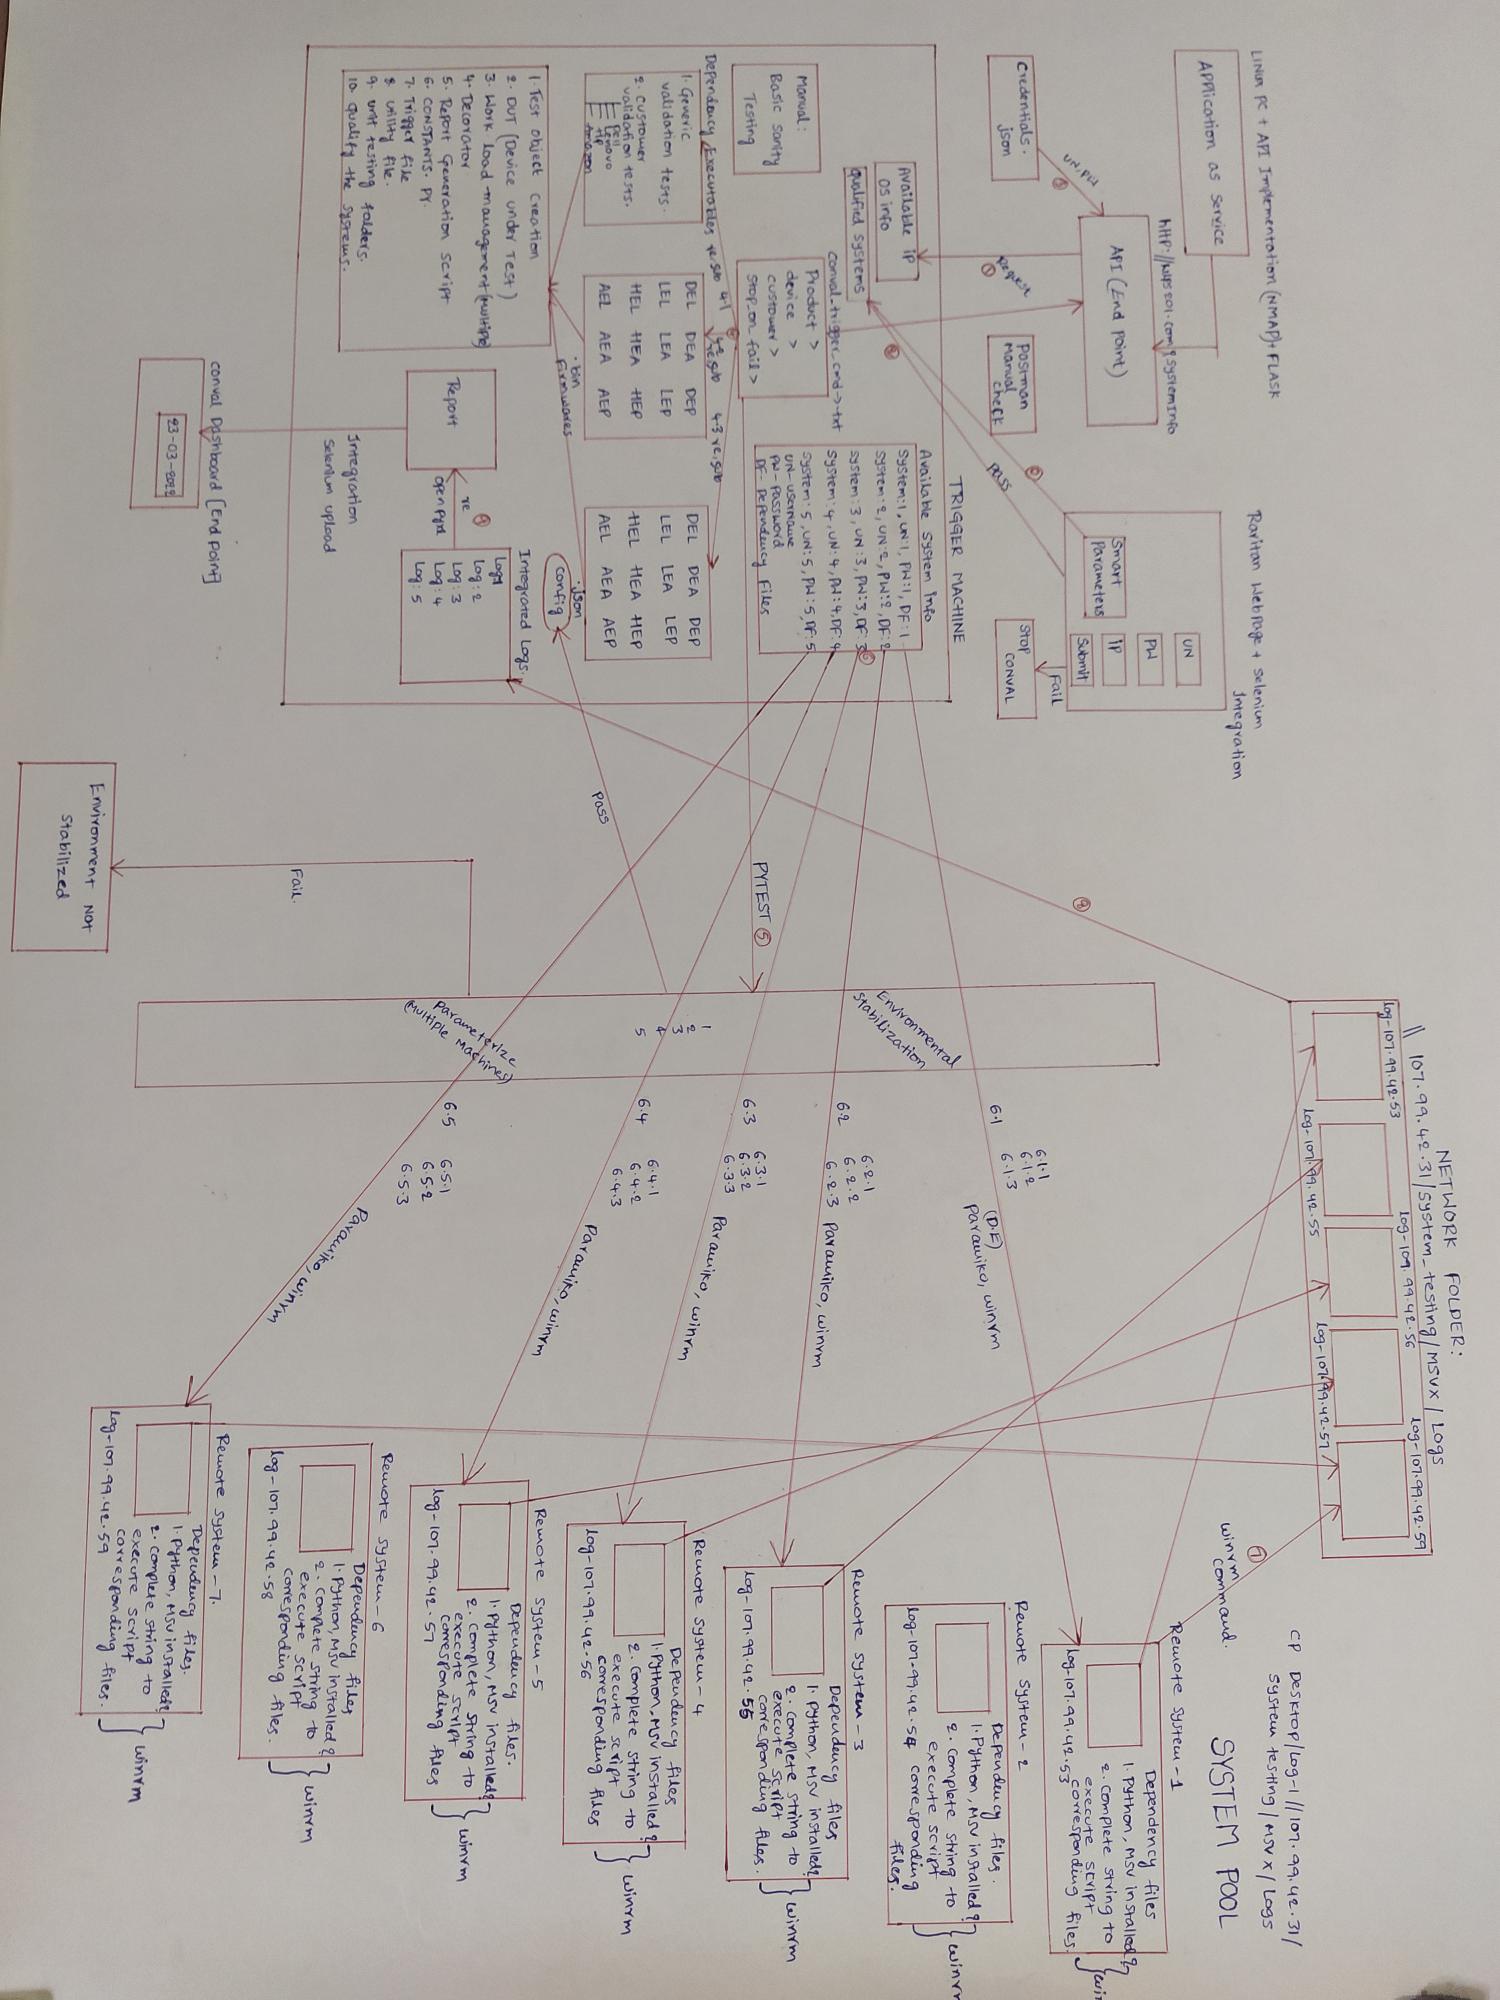 LINUX PC + API Implementation (NMAP) + FLASK
Application as Service
http://
.com/systeminfo
API (End Point)
Credentials.
json
UN, PW
Request
Postman
Manual
check
Available ip
OS info
qualified systems
Raritan Webpage + Selenium
Integration
Smart
Parameters
UN
PW
IP
Submit
Pass
Fail
Stop
CONVAL
TRIGGER MACHINE
Manual:
Basic sanity
Testing
conval_trigger.cmd->.txt
Product >
device >
customer >
stop_on_fail >
Available System Info
System:1, UN:1, PW:1, DF:1
System:2, UN:2, PW:2, DF:2
System:3, UN:3, PW:3, DF:3
System:4, UN:4, PW:4, DF:4
System:5, UN:5, PW:5, DF:5
UN-username
PW-password
DF-Dependency Files
Dependency Executables
re,sub 4.1
4.2 re,sub
4.3 re,sub
1. Generic
validation tests.
2. Customer
validation tests.
Dell
Lenovo
HP
Amazon
DEL DEA DEP
LEL LEA LEP
HEL HEA HEP
AEL AEA AEP
.bin
Firmwares
DEL DEA DEP
LEL LEA LEP
HEL HEA HEP
AEL AEA AEP
.json
config
1. Test object creation
2. DUT (Device under Test)
3. Work load-management (Multiple)
4. Decorator
5. Report Generation script
6. CONSTANTS.PY.
7. Trigger file
8. utility file.
9. unit testing folders.
10. qualify the systems.
Report
re
openpyxl
Integrated Logs.
Log1
Log:2
Log:3
Log:4
Log:5
Integration
Selenium upload
conval Dashboard (End Point)
23-03-2022
Pass
PYTEST 5
Fail.
Environment Not
Stabilized
Environmental
Stabilization
1
2
3
4
5
Parameterize
(Multiple Machines)
6.1
6.1.1
6.1.2
6.1.3
(D.F)
Paramiko, winrm
6.2
6.2.1
6.2.2
6.2.3
Paramiko, winrm
6.3
6.3.1
6.3.2
6.3.3
Paramiko, winrm
6.4
6.4.1
6.4.2
6.4.3
Paramiko, winrm
6.5
6.5.1
6.5.2
6.5.3
Paramiko, winrm
NETWORK FOLDER:
\\ 107.99.42.31/system_testing/MSVX/Logs
log-107.99.42.53
log-107.99.42.55
log-109.99.42.56
log-107.99.42.57
log-107.99.42.59
7
winrm
command.
CP Desktop/log-1//107.99.42.31/
system testing/MSVX/Logs
SYSTEM POOL
Remote System-1
Dependency files
1. Python, MSV installed?
2. Complete string to
execute script
corresponding files.
log-107.99.42.53
Remote System-2
Dependency files.
1. Python, MSV installed?
2. Complete string to
execute script
corresponding
files.
log-107.99.42.54
winrm
Remote System-3
Dependency files
1. Python, MSV installed?
2. Complete string to
execute script
corresponding files.
log-107.99.42.55
winrm
Remote System-4
Dependency files
1. Python, MSV installed?
2. Complete string to
execute script
corresponding files
log-107.99.42.56
winrm
Remote System-5
Dependency files.
1. Python, MSV installed?
2. Complete string to
execute script
corresponding files
log-107.99.42.57
winrm
Remote System-6
Dependency files
1. Python, MSV installed?
2. Complete string to
execute script
corresponding files.
log-107.99.42.58
winrm
Remote System-7.
Dependency files.
1. Python, MSV installed?
2. Complete string to
execute script
corresponding files.
log-107.99.42.59
winrm